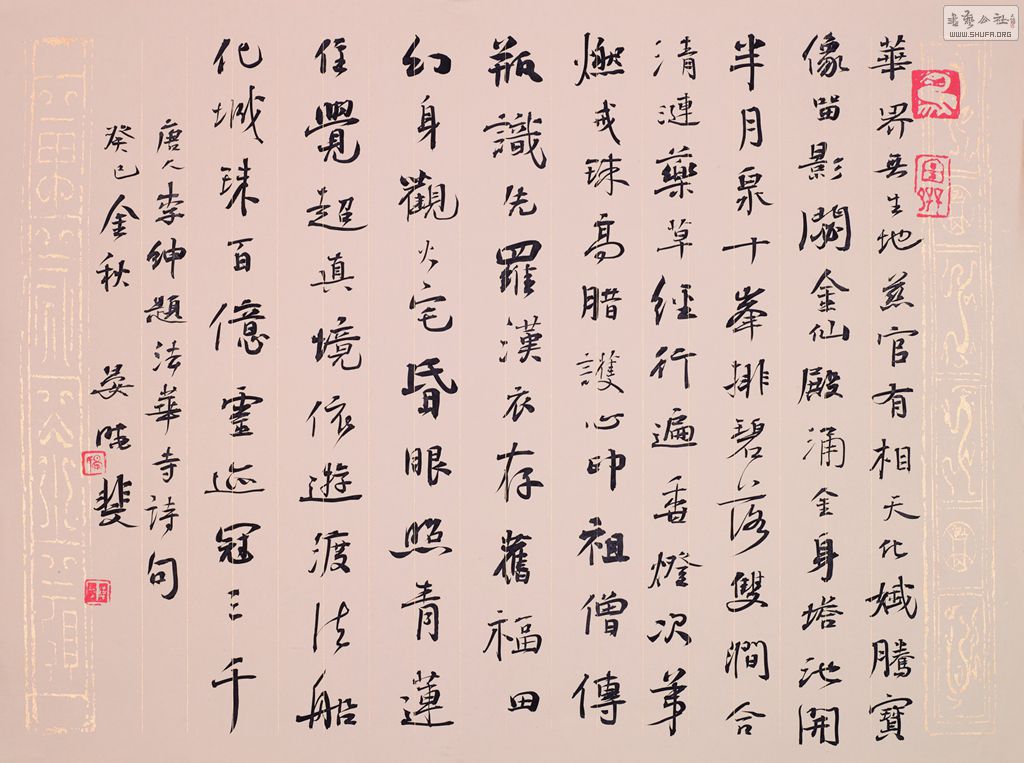 華界無生地慈官有相天化騰寶
像留影閟金仙殿涌金身塔池開
半月泉十峯排碧落雙澗合
清漣藥草經行遍香燈次第
燃戒珠高腊護心印祖僧傳
瓶識先羅漢衣存舊福田
幻身觀火宅昏眼照青蓮
住覺超真境依遊渡法船
化城珠百億靈迹冠三千
唐人李紳題法華寺詩句
癸巳金秋 晏晓斐
書藝公社
WWW.SHUFA.ORG